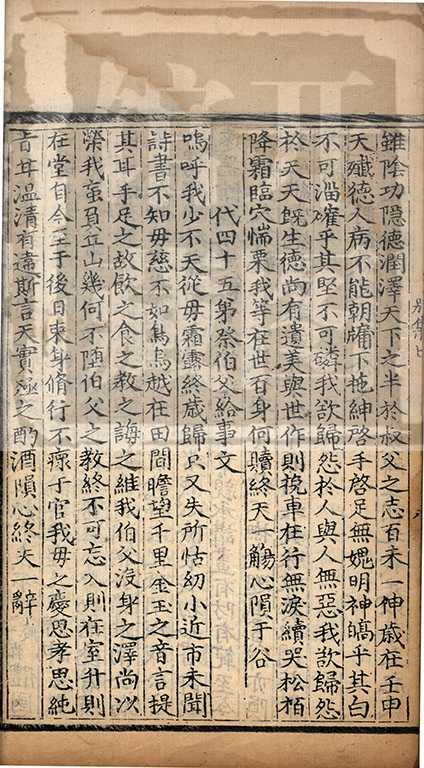 雖陰功隠德潤澤天下之半於叔父之志百未一伸歲在壬申
天殲德人病不能朝牖下扡紳啓手啓足無媿明神皜乎其白
不可淄確乎其堅不可磷我欲歸怨於人與人無惡我欲歸怨
於天天既生德尚有遺美與世作則挽車在行無淚續哭松栢
降霜臨穴惴栗我等在世百身何贖終天一觴心隕于谷
代四十五弟祭伯父給事文
嗚呼我少不天從毋霜露終歲歸只又失所怙幼小近市未聞
詩書不知毋慈不如鳥烏越在田間瞻望千里金玉之音言提
其耳手足之故飲之食之教之誨之維我伯父沒身之澤尚以
榮我蚉負丘山幾何不墮伯父之教終不可忘入則在室升則
在堂自今至于後日束身脩行不瘝于官我毋之慶思孝思純
旨甘温凊有違斯言天實殛之酌酒隕心終天一辭